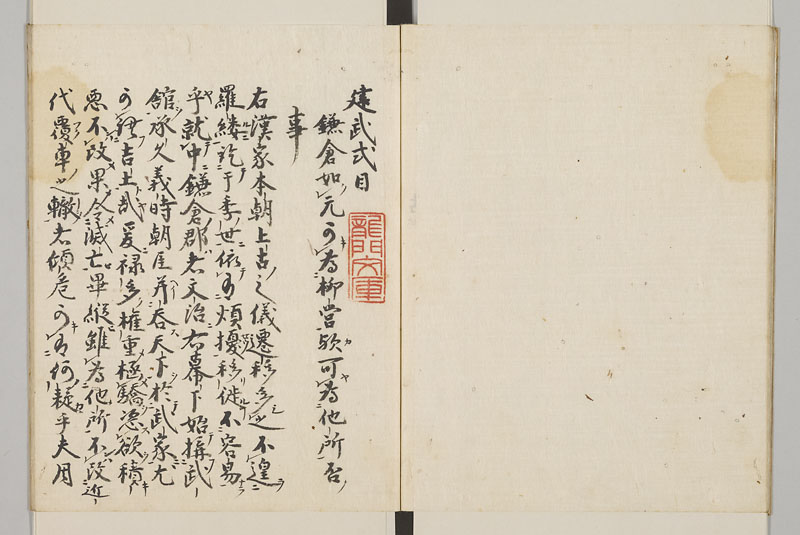 建武式目
鎌倉如元可為柳営歟可為他所否
事
龍門文庫
右漢家本朝上古之儀遷移多之不遑
羅縷迄于季世依有煩擾移徙不容易
乎就中鎌倉郡者文治右幕下始搆武
館承久義時朝臣并呑天下於武家尤
可謂吉土哉爰禄多権重極驕恣欲積
悪不改果令滅亡畢縦雖為他所不改近
代覆車之轍者傾危可有何疑乎夫周